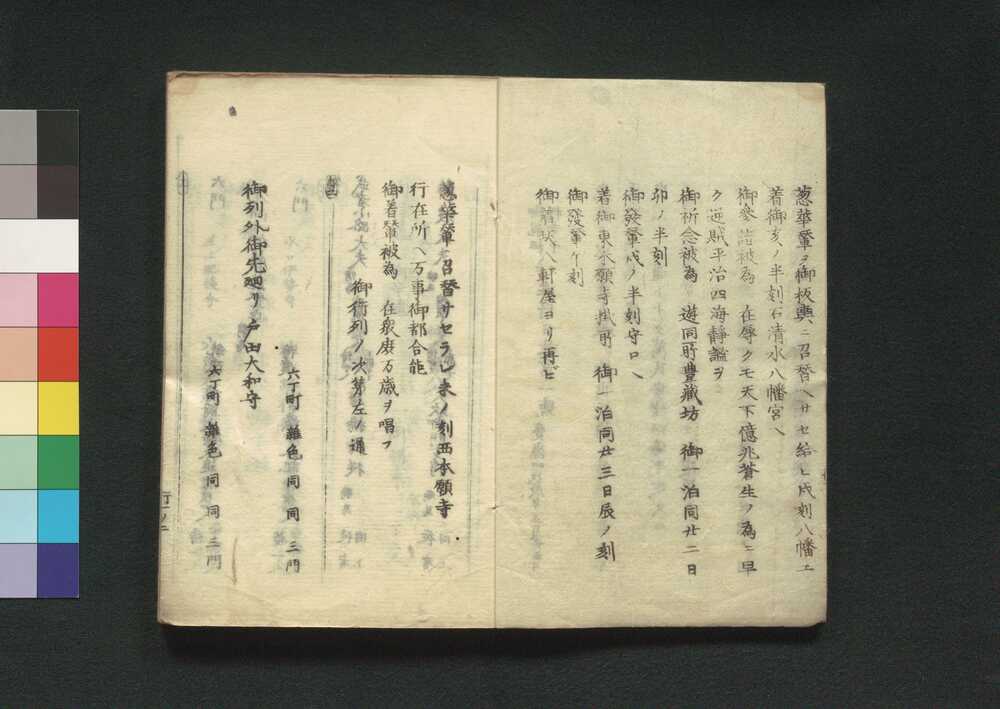 葱華輦ヲ御板輿ニ召替ヘサセ給ヒ戌刻八幡エ
着御亥ノ半刻石清水八幡宮ヘ
御参詣被為 在辱クモ天下億兆蒼生ノ為ニ早
ク逆賊平治四海静謐ヲ
御祈念被為 遊同所豊蔵坊 御一泊同廿二日
卯ノ半刻
御發輦戌ノ半刻守口ヘ
着御東本願寺掛所 御一泊同廿三日辰ノ刻
御發輦午刻
御着 八軒屋ヨリ再ビ
葱華輦 召替サセラレ未ノ刻西本願寺
行在所ヘ万事御都合能
御着輦被為 在衆庶万歳ヲ唱フ
御行列ノ次第左ノ通
六丁町 雜色 同 同 三門
御列外御先廻リ 戸田大和守
六丁町 雜色 同 同 三門